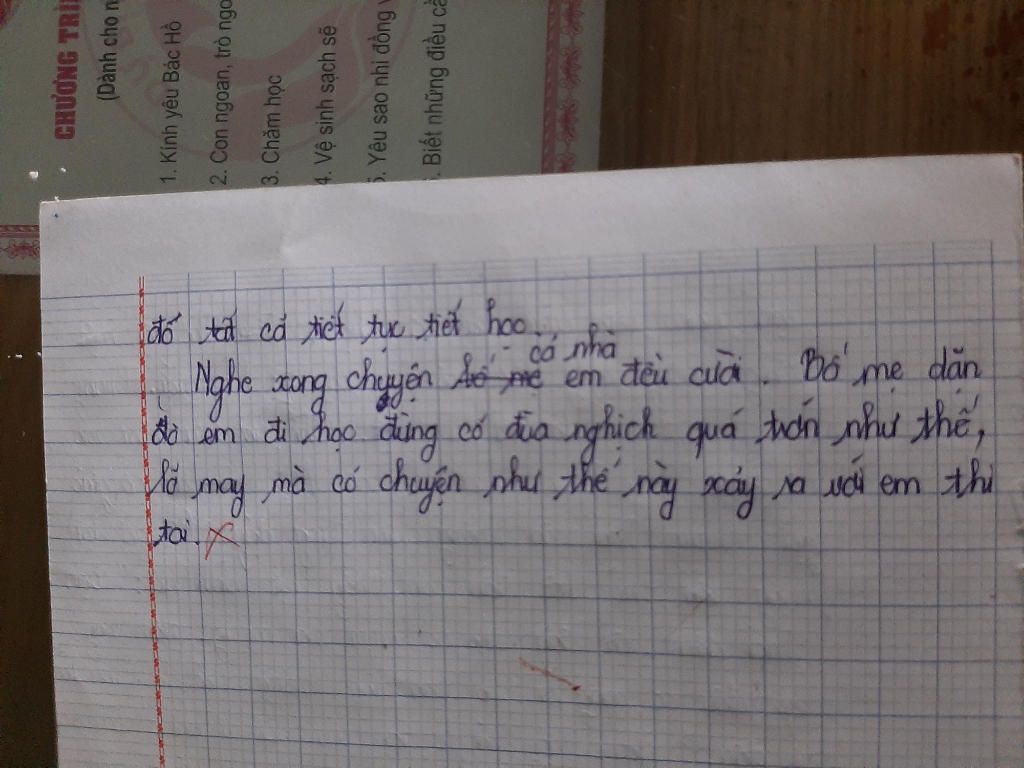 CHƯƠNG TRÌ
(Dành cho n
1. Kính yêu Bác Hồ
2. Con ngoan, trò ngo
3. Chăm học
4. Vệ sinh sạch sẽ
5. Yêu sao nhi đồng v
6. Biết những điều cầ
đó tất cả tiết tục tiết học.
Nghe xong chuyện bố mẹ cả nhà em đều cười. Bố mẹ dặn
dò em đi học đừng có đùa nghịch quá trớn như thế,
lỡ may mà có chuyện như thế này xảy ra với em thì
toi.